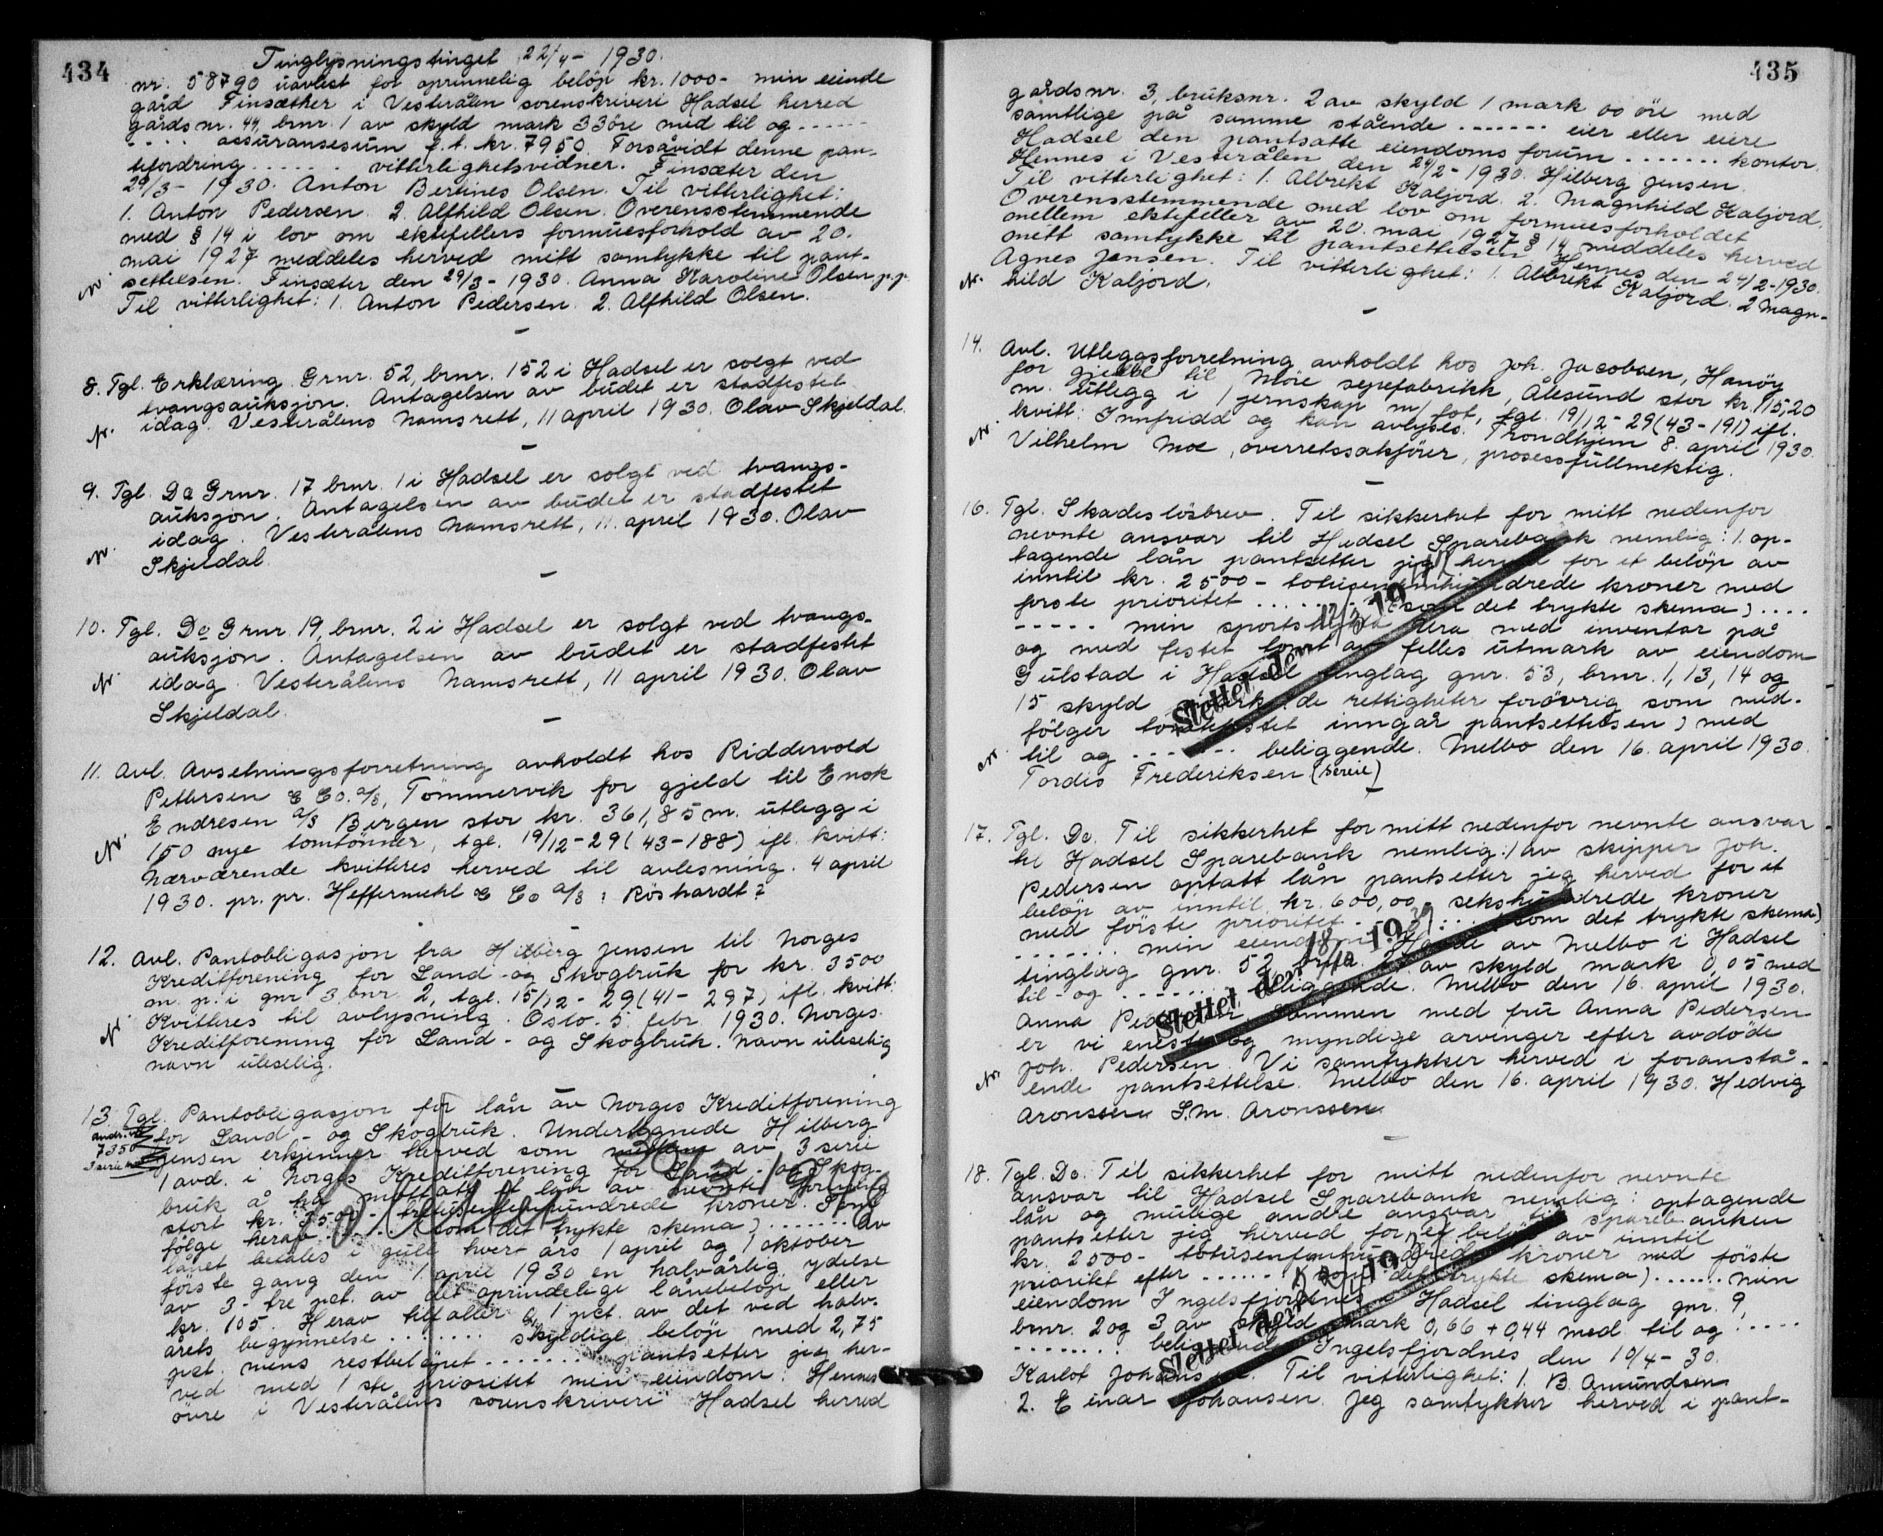 434
Tinglysningstinget 22/4 - 1930.
nr. 58790 uavlest for oprinnelig beløp kr. 1000 - min eiende
gård Finsæther i Vesterålen sorenskriveri Hadsel herred
gårdsnr. 44, brnr. 1 av skyld mark 33 öre med til og ......
.... assuransesum f.t. kr. 7950. Forsåvidt denne pan-
tefordring ...... vitterlighetsvidner. Finsæter den
29/3 - 1930. Anton Bertines Olsen. Til vitterlighet:
1. Anton Pedersen. 2. Alfhild Olsen. Overensstemmende
med § 14 i lov om ektefellers formuesforhold av 20.
mai 1927 meddeles herved mitt samtykke til pant-
settelsen. Finsæter den 29/3 - 1930. Anna Karoline Olsen p.p.
Til vitterlighet: 1. Anton Pedersen. 2. Alfhild Olsen.
8. Tgl. Erklæring. Grnr. 52, brnr. 152 i Hadsel er solgt ved
tvangsauksjon. Antagelsen av budet er stadfestet
idag. Vesterålens Namsrett, 11 april 1930. Olav Skjeldal.
9. Tgl. Do Grnr. 17 brnr. 1 i Hadsel er solgt ved tvangs-
auksjon. Antagelsen av budet er stadfestet
idag. Vesterålens Namsrett, 11. april 1930. Olav
Skjeldal.
10. Tgl. Do Grnr. 19, brnr. 2 i Hadsel er solgt ved tvangs-
auksjon. Antagelsen av budet er stadfestet
idag. Vesterålens Namsrett, 11 april 1930. Olav
Skjeldal.
11. Avl. Avsetningsforretning avholdt hos Riddervold
Pettersen & Co. a/s, Tömmervik for gjeld til Ensk
Endresen a/s Bergen stor kr. 361,85 m. utlegg i
150 nye tomtönner, tgl. 19/12 - 29 (43 - 188) ifl. kvitt:
Nærværende kvitteres herved til avlesning. 4 april
1930. pr. pr. Heffermehl & Co a/s : Röshardt?
12. Avl. Pantobligasjon fra Hilberg Jensen til Norges
Kreditforening for Land - og Skogbruk for kr. 3500
m. p. i gnr 3 bnr 2, tgl. 15/12 - 29 (41 - 297) ifl. kvitt:
Kvitteres til avlysning. Oslo. 5. febr. 1930. Norges
Kreditforening for Land - og Skogbruk. Navn uleselig
navn uleselig.
13. Tgl. Pantobligasjon for lån av Norges Kreditforening
for Land - og Skogbruk. Undertegnede Hilberg
Jensen erkjenner herved som av 3 serie
1 avd. i Norges Kreditforening for Land - og Skog-
bruk å ha mottatt et lån av nevnte forening
stort kr. 3500 - tretusenfemhundrede kroner. Som
følge herav ...... (som det trykte skema) ...... av
lånet betales i gull hvert års 1 april og 1 oktober
förste gang den 1 april 1930 en halvårlig ydelse
av 3 - tre pct. av det oprindelige lånebeløp eller
kr. 105. Herav tilfaller 1 pct. av det ved halv-
årets begynnelse ...... skyldige beløp med 2,75
pct. mens restbeløpet ...... pantsetter jeg her-
ved med 1ste prioritet min eiendom: Hennes
övre i Vesterålens sorenskriveri Hadsel herred
435
gårdsnr. 3, bruksnr. 2 av skyld 1 mark 00 öre med
samtlige på samme stående ...... eier eller eiere
Hadsel den pantsatte eiendoms forum ...... kontor.
Hennes i Vesterålen den 24/2 - 1930. Hilberg Jensen.
Til vitterlighet: 1. Albrekt Kaljord. 2. Magnhild Kaljord.
Overensstemmende med lov om formuesforholdet
mellem ektefeller av 20. mai 1927 § 14 meddeles herved
mitt samtykke til pantsettelsen. Hennes den 24/2 - 1930.
Agnes Jensen. Til vitterlighet: 1. Albrekt Kaljord. 2 Magn-
hild Kaljord.
14. Avl. Utleggsforretning avholdt hos Joh. Jacobsen, Hanöy
for gjeld til Möre seprefabrikk, Ålesund stor kr. 115,20
m. utlegg i 1 jernskap m/ fot, tgl. 19/12 - 29 (43 - 191) ifl.
kvitt: Innfridd og kan avlyses. Trondhjem 8. april 1930.
Vilhelm Moe, overretssakförer, prosessfullmektig.
16. Tgl. Skadeslösbrev. Til sikkerhet for mitt nedenfor
nevnte ansvar til Hadsel Sparebank nemlig: 1. op-
tagende lån pantsetter jeg herved for et beløp av
inntil kr. 2500 - totusenfemhundrede kroner med
forste prioritet ...... (som det trykte skema) ....
..... min med inventar på
og med festet tomt av felles utmark av eiendom
Gulstad i Hadsel tinglag gnr. 53, brnr. 1, 13, 14 og
15 skyld mark (de rettigheter forövrig som med-
fölger tomtefestet inngår pantsettelsen) med
til og ...... beliggende. Melbo den 16. april 1930.
Tordis Frederiksen (sereie)
Slettet den 19
17. Tgl. Do. Til sikkerhet for mitt nedenfor nevnte ansvar
til Hadsel Sparebank nemlig: 1 av skipper Joh.
Pedersen optatt lån pantsetter jeg herved for et
beløp av inntil kr. 600,00 - sekshundrede kroner
med förste prioritet ...... (som det trykte skema)
...... min eiendom av Melbo i Hadsel
tinglag gnr. 52 av skyld mark 0,05 med
til - og ...... beliggende. Melbo den 16. april 1930.
Anna Pedersen. Sammen med fru Anna Pedersen
er vi eneste og myndige arvinger efter avdöde
Joh. Pedersen. Vi samtykker herved i foranstå-
ende pantsettelse. Melbo den 16. april 1930. Hedvig
Aronssen. S.M. Aronssen.
Slettet den 19
18. Tgl. Do. Til sikkerhet for mitt nedenfor nevnte
ansvar til Hadsel Sparebank nemlig: optagende
lån og mulige andre ansvar til sparebanken
pantsetter jeg herved for et beløp av inntil
kr. 2500 - totusenfemhundrede kroner med förste
prioritet efter ...... (som det trykte skema) ...... min
eiendom Ingelsfjordnes i Hadsel tinglag gnr. 9,
brnr. 2 og 3 av skyld mark 0,66 + 0,44 med til og ....
...... beliggende Ingelsfjordnes den 10/4 - 30.
Karlot Johansen. Til vitterlighet: 1. B. Amundsen
2. Einar Johansen. Jeg samtykker herved i pant-
Slettet den 19